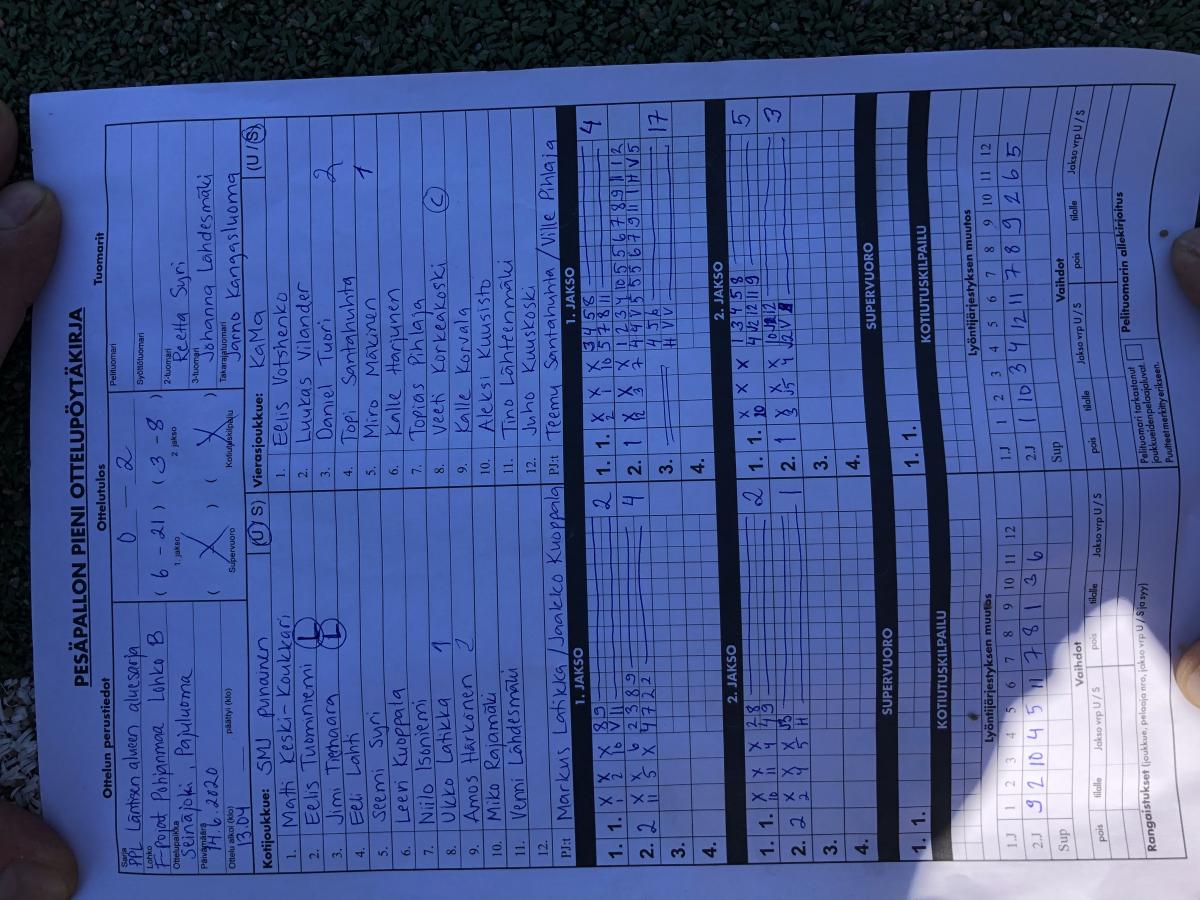 PESÄPALLON PIENI OTTELUPÖYTÄKIRJA
Ottelun perustiedot
Sarja
PPL Läntisen alueen aluesarja
Lohko
F-pojat Pohjanmaa Lohko B
Ottelupaikka
Seinäjoki, Pajuluoma
Päivämäärä
Ottelu alkoi (klo)
13.04
päättyi (klo)
Ottelutulos
0 – 2
( 6 - 21 ) ( 3 - 8 )
1. jakso 2. jakso
( X ) ( X )
Supervuoro Kotiutuskilpailu
Tuomarit
Pelituomari
Syöttötuomari
2-tuomari
Reetta Syri
3-tuomari
Johanna Lähdesmäki
Takarajatuomari
Jarno Kangasluoma
Kotijoukkue: SMJ punainen (U / S)
1. Matti Keski-Koukkari
2. Eelis Tuominiemi L
3. Jimi L
4. Eeli Lahti
5. Seemi Syri
6. Leevi Kuoppala
7. Niilo Isoniemi
8. Ukko Latikka 1
9. Amos Härkönen 2
10. Miko Rajamäki
11. Venni Lähdesmäki
12.
PJ:t Markus Latikka / Jaakko Kuoppala
Vierasjoukkue: KaMa (U / S)
1. Eelis Votshenko
2. Luukas Vilander
3. Daniel Tuori 2
4. Topi Santahuhta
5. Miro Mäkinen 1
6. Kalle Harjunen
7. Topias Pihlaja
8. Veeti Korkeakoski C
9. Kalle Korvala
10. Aleksi Kuusisto
11. Tino Lähteenmäki
12. Juho Kuuskoski
PJ:t Teemu Santahuhta / Ville Pihlaja
1. JAKSO
1. 1. X X X 8 9 2
2. 2 X X 6 2 3 8 9 4
3.
4.
1. JAKSO
1. 1. X X X 3 4 5 8 4
2. 1 X X 1 2 3 4 10 5 5 6 7 8 9 11 12
3. 4 5 6 17
4.
2. JAKSO
1. 1. X X X 2 8 2
2. 2 X X X 1
3.
4.
2. JAKSO
1. 1. X X X 1 3 4 5 8 5
2. 1 X X 3
3.
4.
SUPERVUORO
1. 1.
SUPERVUORO
1. 1.
KOTIUTUSKILPAILU
KOTIUTUSKILPAILU
Lyöntijärjestyksen muutos
1.J 1 2 3 4 5 6 7 8 9 10 11 12
2.J 9 2 10 4 5 11 7 8 1 3 6
Sup
Lyöntijärjestyksen muutos
1.J 1 2 3 4 5 6 7 8 9 10 11 12
2.J 1 10 3 4 12 11 7 8 9 2 6 5
Sup
Vaihdot
pois tilalle Jakso vrp U / S pois tilalle Jakso vrp U / S
Vaihdot
pois tilalle Jakso vrp U / S pois tilalle Jakso vrp U / S
Rangaistukset (joukkue, pelaaja nro, jakso vrp U / S ja syy)
Pelituomari tarkastanut
joukkueiden pelaajaluvat.
Puutteet merkitty erikseen.
Pelituomarin allekirjoitus